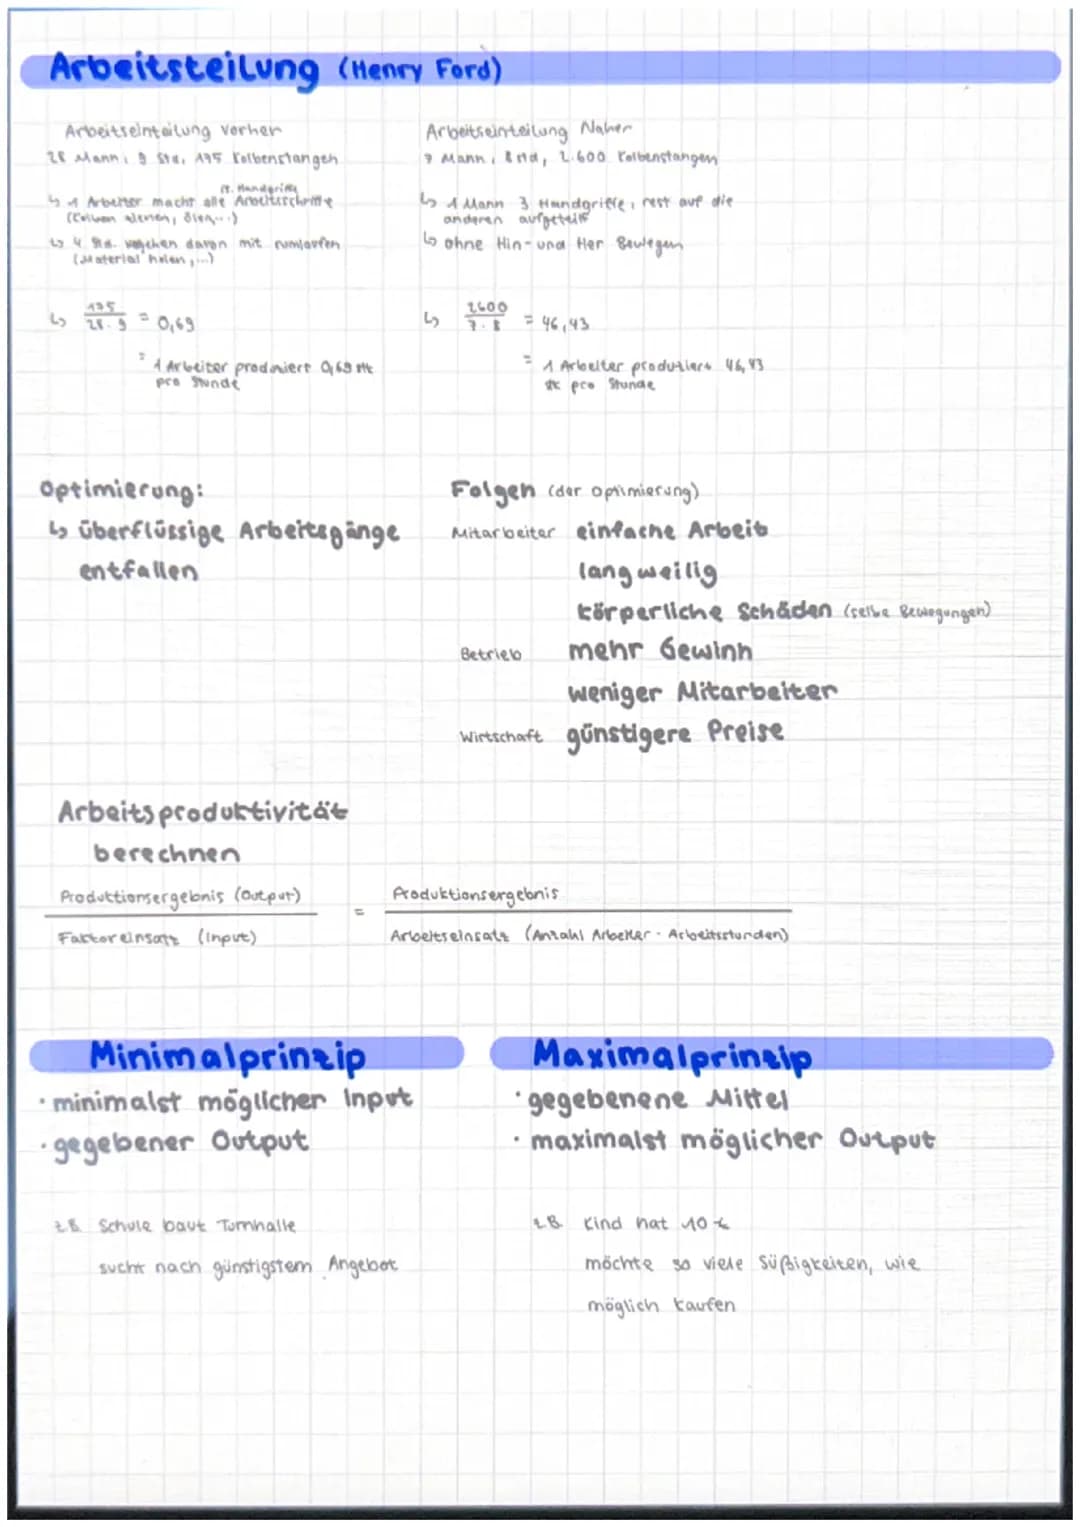 Arbeitsteilung (Henry Ford)
Arbeitseinteilung Vorher
28 Mann, 9 Std, 175 Kolbenstangen
↳ 1 Arbeiter macht alle Arbeitsschritte
(Kolben ölen...)
↳ 4 Std. davon mit rumlaufen
(Material holen,...)
↳ 175 / 28 · 9 = 0,69
= 1 Arbeiter produziert 0,69 Stk
pro Stunde
Arbeitseinteilung Naher
7 Mann, 8 Std, 2.600 Kolbenstangen
↳ 1 Mann 3 Handgriffe, rest auf die
anderen aufgeteilt
↳ ohne Hin- und Her Bewegen
↳ 2600 / 7 · 8 = 46,43
= 1 Arbeiter produziert 46,43
Stk pro Stunde
Optimierung:
↳ überflüssige Arbeitsgänge
entfallen
Folgen (der Optimierung)
Mitarbeiter einfache Arbeit
langweilig
körperliche Schäden (selbe Bewegungen)
Betrieb mehr Gewinn
weniger Mitarbeiter
Wirtschaft günstigere Preise
Arbeitsproduktivität
berechnen
Produktionsergebnis (Output) = Produktionsergebnis
Faktoreinsatz (Input) Arbeitseinsatz (Anzahl Arbeiter · Arbeitsstunden)
Minimalprinzip
· minimalst möglicher Input
· gegebener Output
z.B. Schule baut Turnhalle
sucht nach günstigstem Angebot
Maximalprinzip
· gegebenene Mittel
· maximalst möglicher Output
z.B. Kind hat 10 €
möchte so viele Süßigkeiten, wie
möglich kaufen